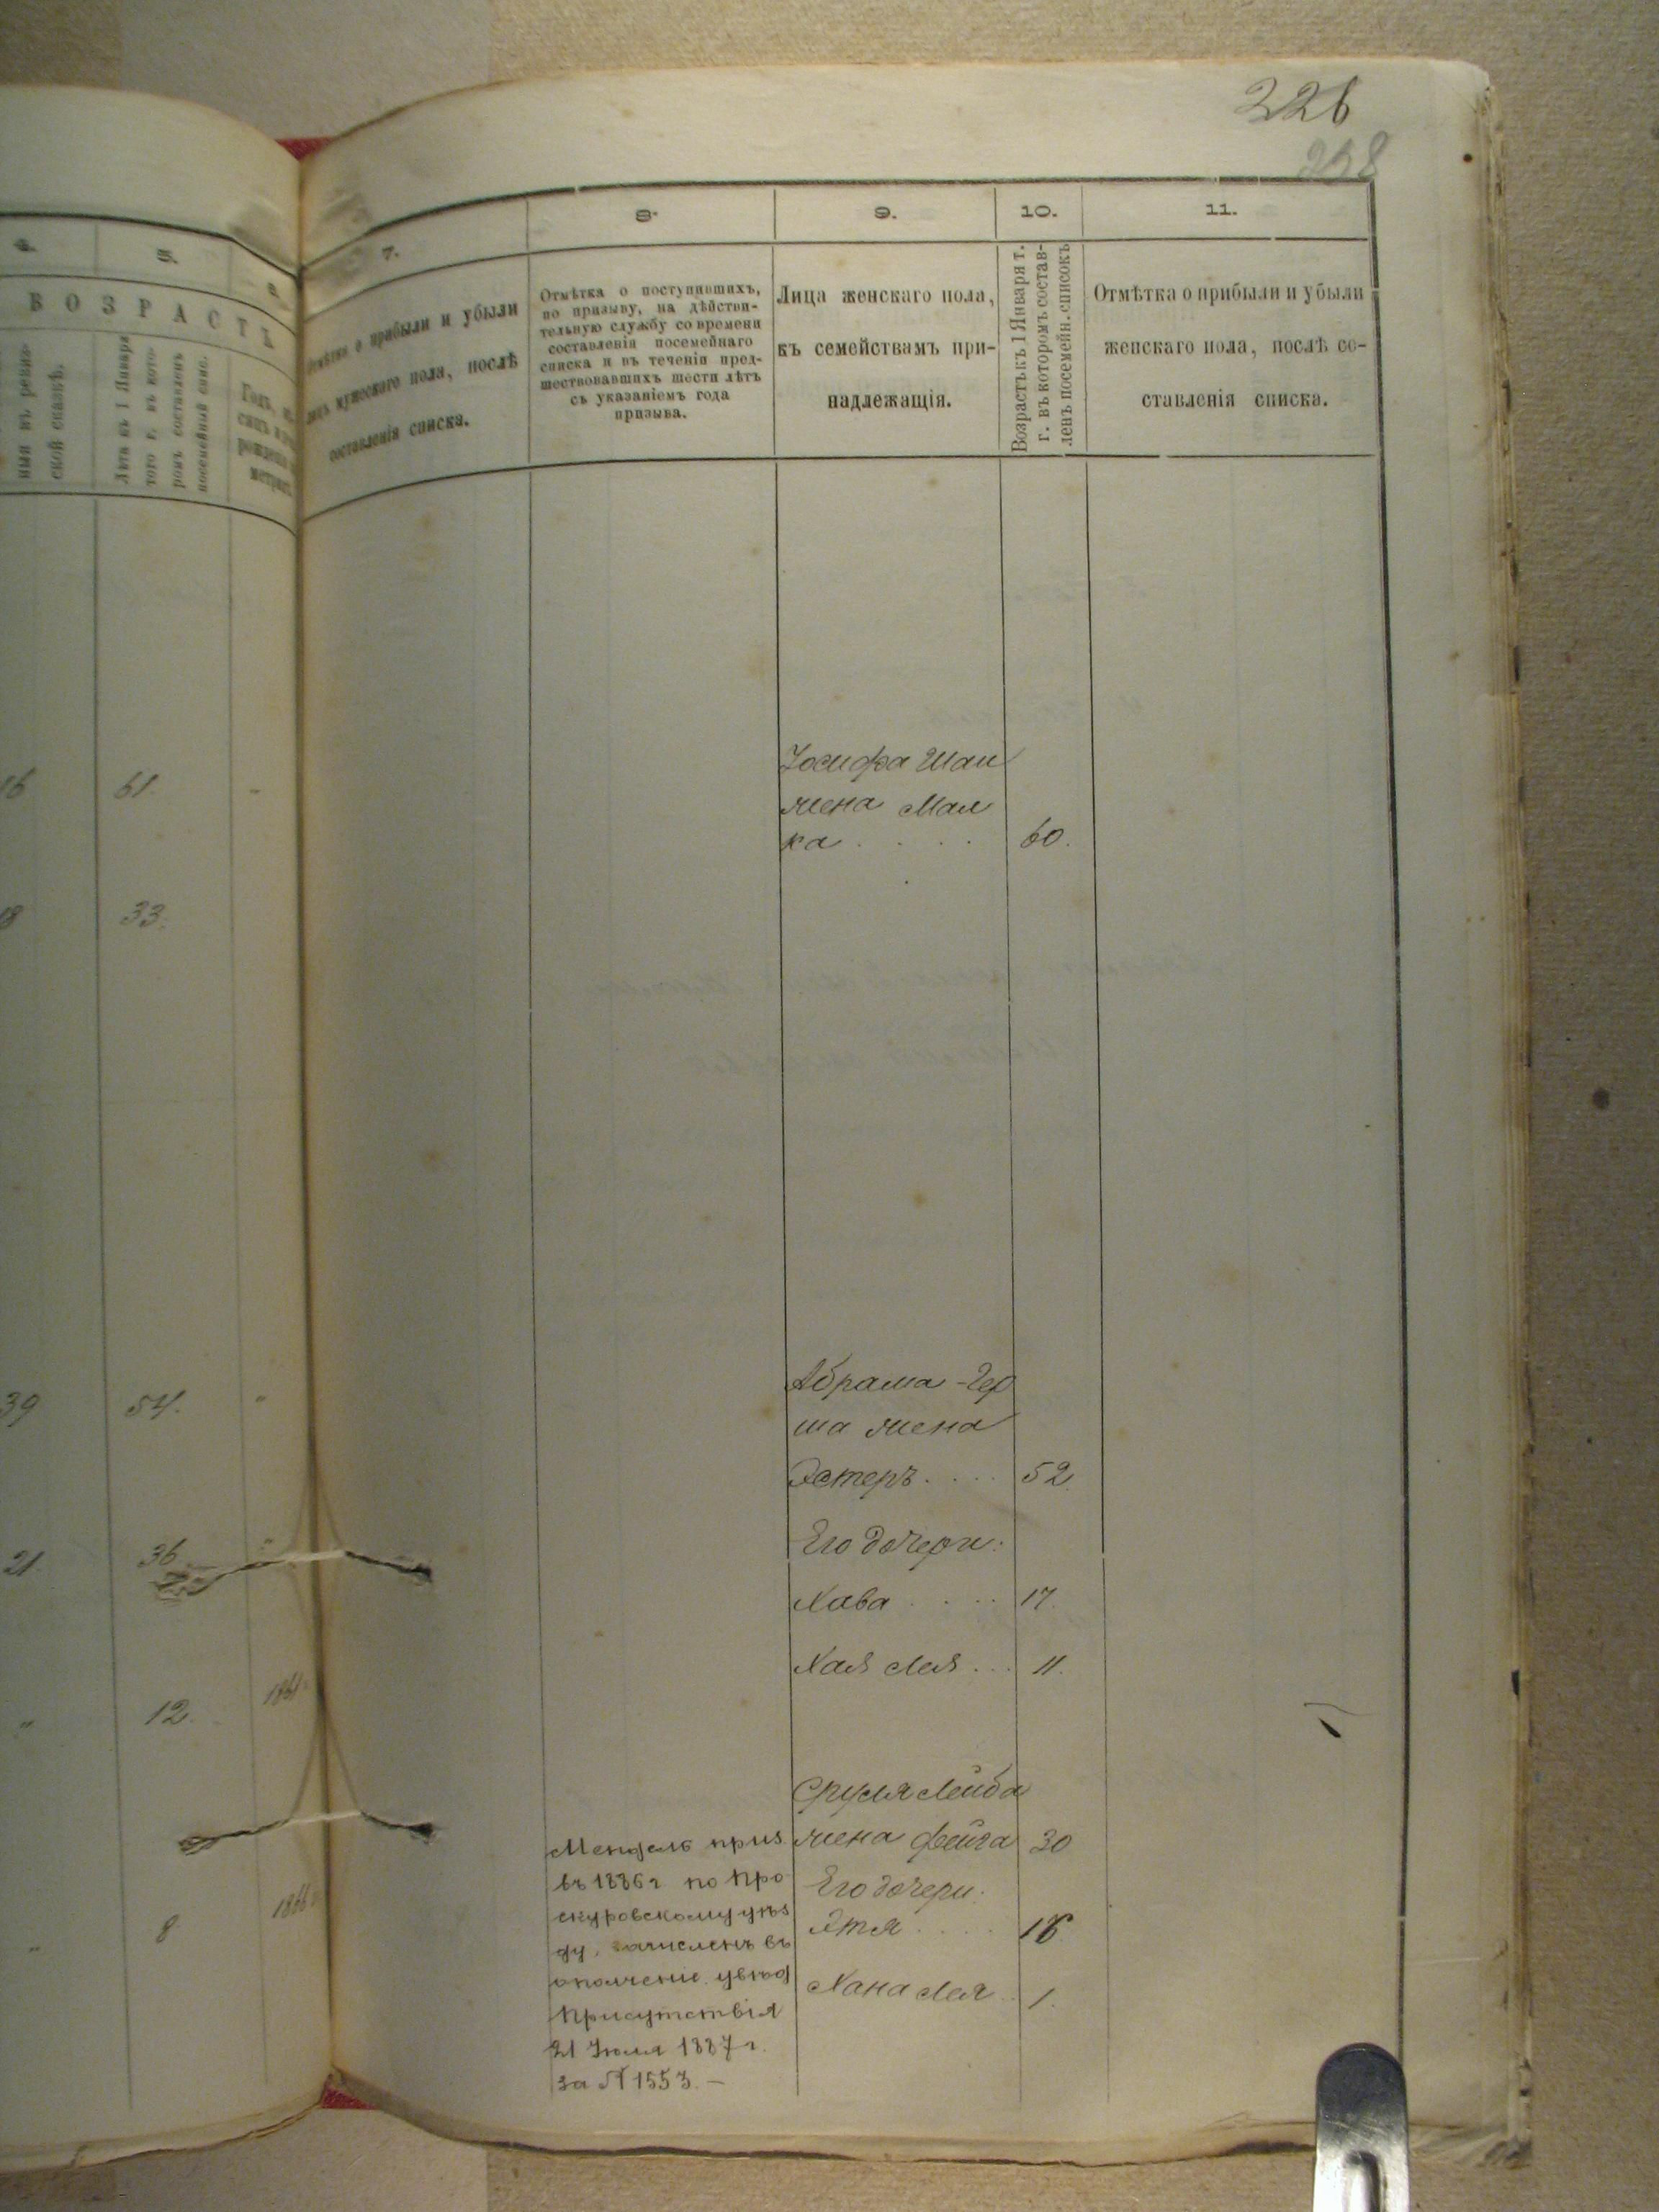 226
238
4.
5.
6
ВОЗРАСТЪ
ныя въ ревиз-
ской сказкѣ.
Лѣта къ 1 Января
того г. въ кото-
ромъ составленъ
посемейный спис.
Годъ, мѣ-
рожденія
метрич.
16 61. -
18 33.
39 54. "
21. 36 "
" 12. 1861
" 8 1866
7.
Отмѣтка о прибыли и убыли
лицъ мужескаго пола, послѣ
составленія списка.
8.
Отмѣтка о поступившихъ,
по призыву, на дѣйстви-
тельную службу со времени
составленія посемейнаго
списка и въ теченіи пред-
шествовавшихъ шести лѣтъ
съ указаніемъ года
призыва.
9.
Лица женскаго пола,
къ семействамъ при-
надлежащія.
10.
Возрастъ къ 1 Января т.
г. въ которомъ состав-
ленъ посемейн. списокъ
11.
Отмѣтка о прибыли и убыли
женскаго пола, послѣ со-
ставленія списка.
Іосифа Шаи
жена Мал
ка . . . . 60.
Абрама-Гер
ша жена
Эстеръ . . . . 52.
Его дочери:
Хава . . . . 17.
Хая Лея . . . 11.
Сруля Лейба
жена Фейга 30
Его дочери:
Этя . . . . 16
Хана Лея . . 1.
Мендель приз.
въ 1886 г по Про
скуровскому уѣз
ду, зачисленъ въ
ополченіе. увѣд
Присутствія
21 Іюля 1887 г.
за № 1553. –